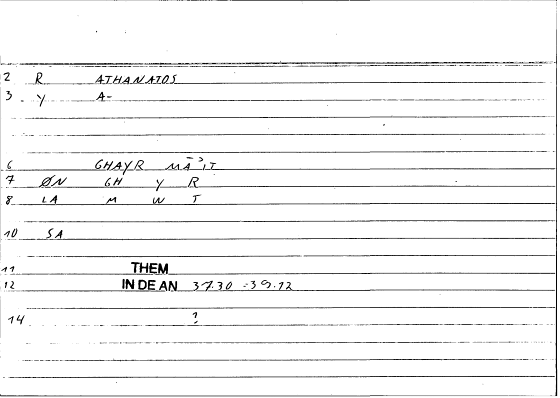 2 R ATHANATOS
3 Y A-
6 GHAYR MĀʾIT
7 ØN GH Y R
8 LA M W T
10 SA
11 THEM
12 IN DE AN 37.30 = 39.12
14 ?